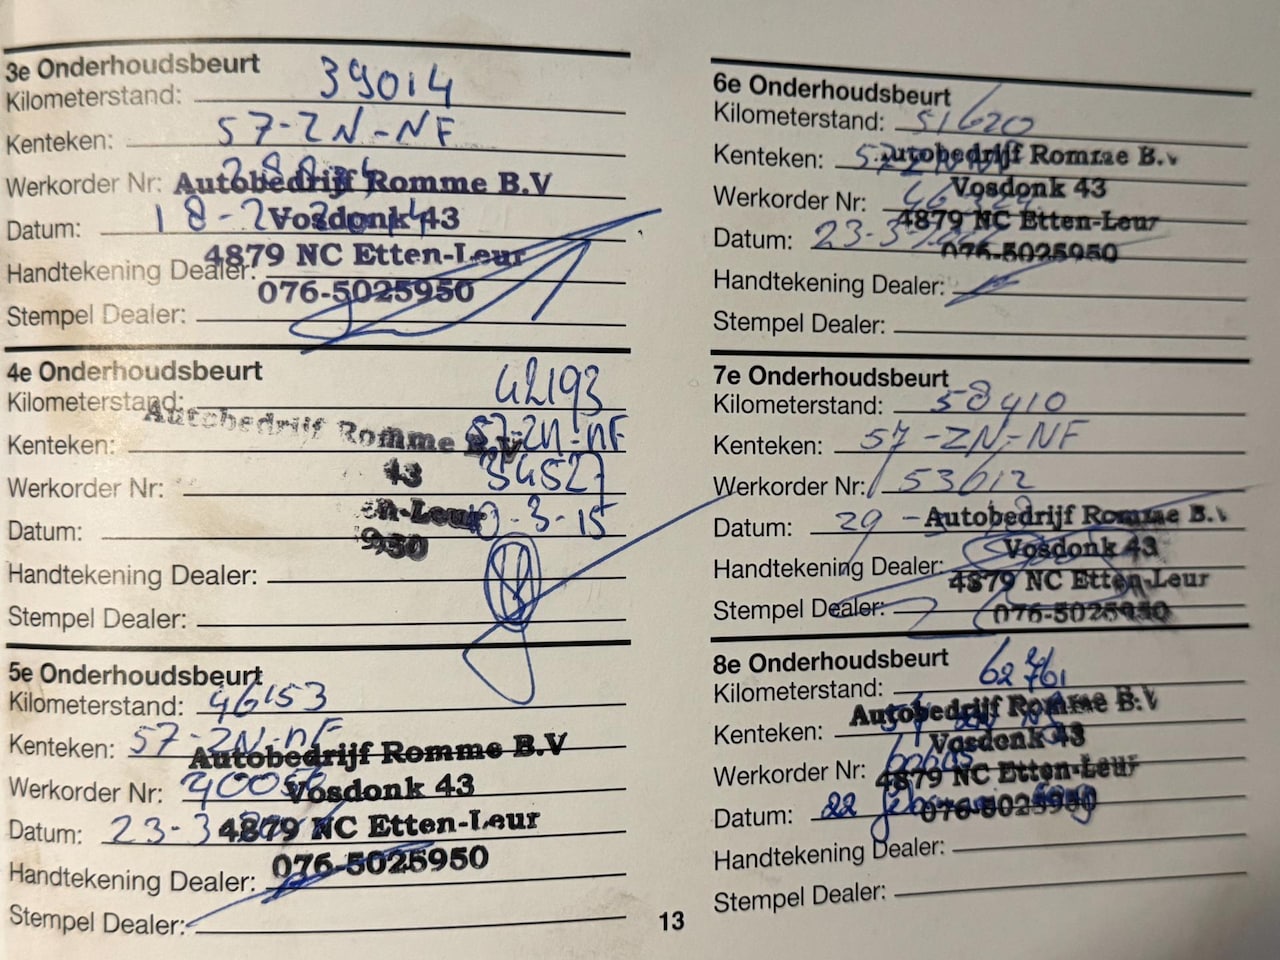 3e Onderhoudsbeurt
Kilometerstand: 39014
Kenteken: 57-ZN-NF
Werkorder Nr: Autobedrijf Romme B.V
Datum: 18-2- Vosdonk 43
4879 NC Etten-Leur
Handtekening Dealer:
076-5025950
Stempel Dealer:
4e Onderhoudsbeurt
Kilometerstand: 42193
Autobedrijf Romme B.V
Kenteken: 57-ZN-NF
43
Werkorder Nr: 34527
n-Leur
Datum: -3-15
950
Handtekening Dealer:
Stempel Dealer:
5e Onderhoudsbeurt
Kilometerstand: 46153
Kenteken: 57-ZN-NF
Autobedrijf Romme B.V
Werkorder Nr: Vosdonk 43
Datum: 23-3 4879 NC Etten-Leur
076-5025950
Handtekening Dealer:
Stempel Dealer:
6e Onderhoudsbeurt
Kilometerstand: 51620
Kenteken: Autobedrijf Romme B.V
Vosdonk 43
Werkorder Nr:
4879 NC Etten-Leur
Datum: 23-3
076-5025950
Handtekening Dealer:
Stempel Dealer:
7e Onderhoudsbeurt
Kilometerstand: 58410
Kenteken: 57-ZN-NF
Werkorder Nr: 53612
Datum: 29 - Autobedrijf Romme B.V
Vosdonk 43
Handtekening Dealer:
4879 NC Etten-Leur
Stempel Dealer:
076-5025950
8e Onderhoudsbeurt
Kilometerstand:
Autobedrijf Romme B.V
Kenteken:
Vosdonk 43
Werkorder Nr:
4879 NC Etten-Leur
Datum: 22
076-5025950
Handtekening Dealer:
Stempel Dealer:
13